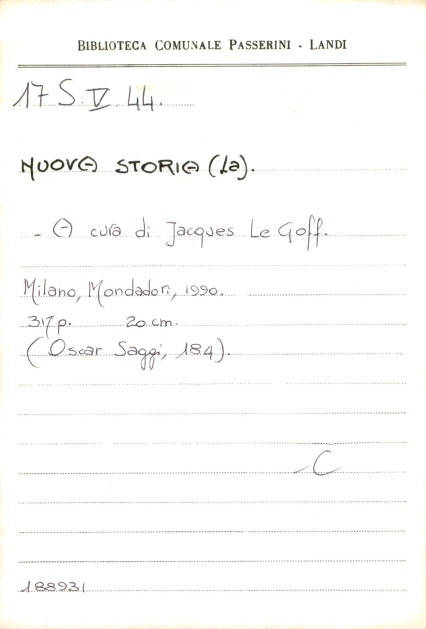 BIBLIOTECA COMUNALE PASSERINI - LANDI
17 S. V 44.
NUOVA STORIA (La).
- A cura di Jacques Le Goff.
Milano, Mondadori, 1990.
317 p. 20 cm.
(Oscar Saggi, 184).
C
188931